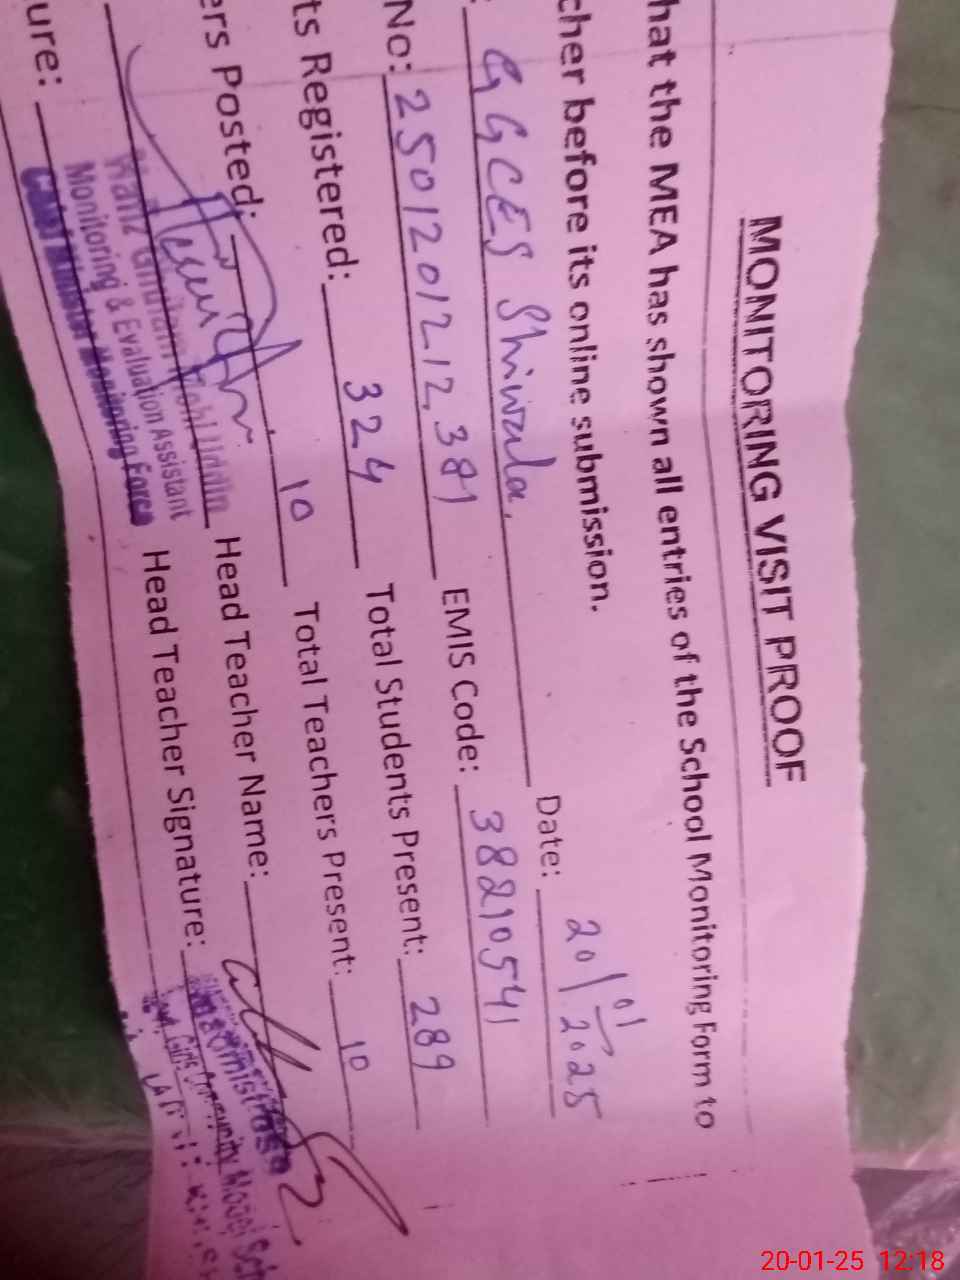 MONITORING VISIT PROOF
hat the MEA has shown all entries of the School Monitoring Form to
cher before its online submission.
: GGCES Shiwala. Date: 20/01/2025
No: 2501201212,381 EMIS Code: 38210541
ts Registered: 324 Total Students Present: 289
ers Posted: 10 Total Teachers Present: 10
Head Teacher Name:
ure: Head Teacher Signature:
Monitoring & Evaluation Assistant
Monitoring Force
20-01-25 12:18